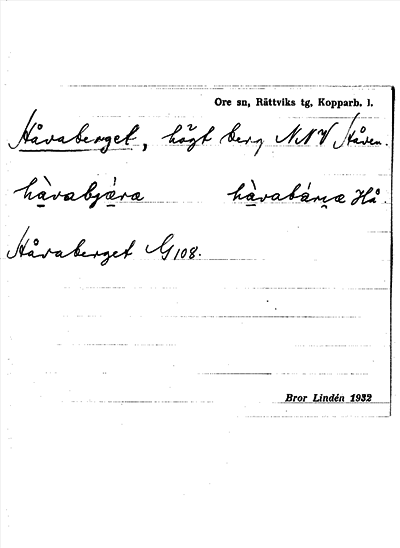 Ore sn, Rättviks tg, Kopparb. l.
Håvaberget, högt berg NNV Håven.
hàvabjæ̀ra hàvabárnæ Hå.
Håvaberget G 108.
Bror Lindén 1932